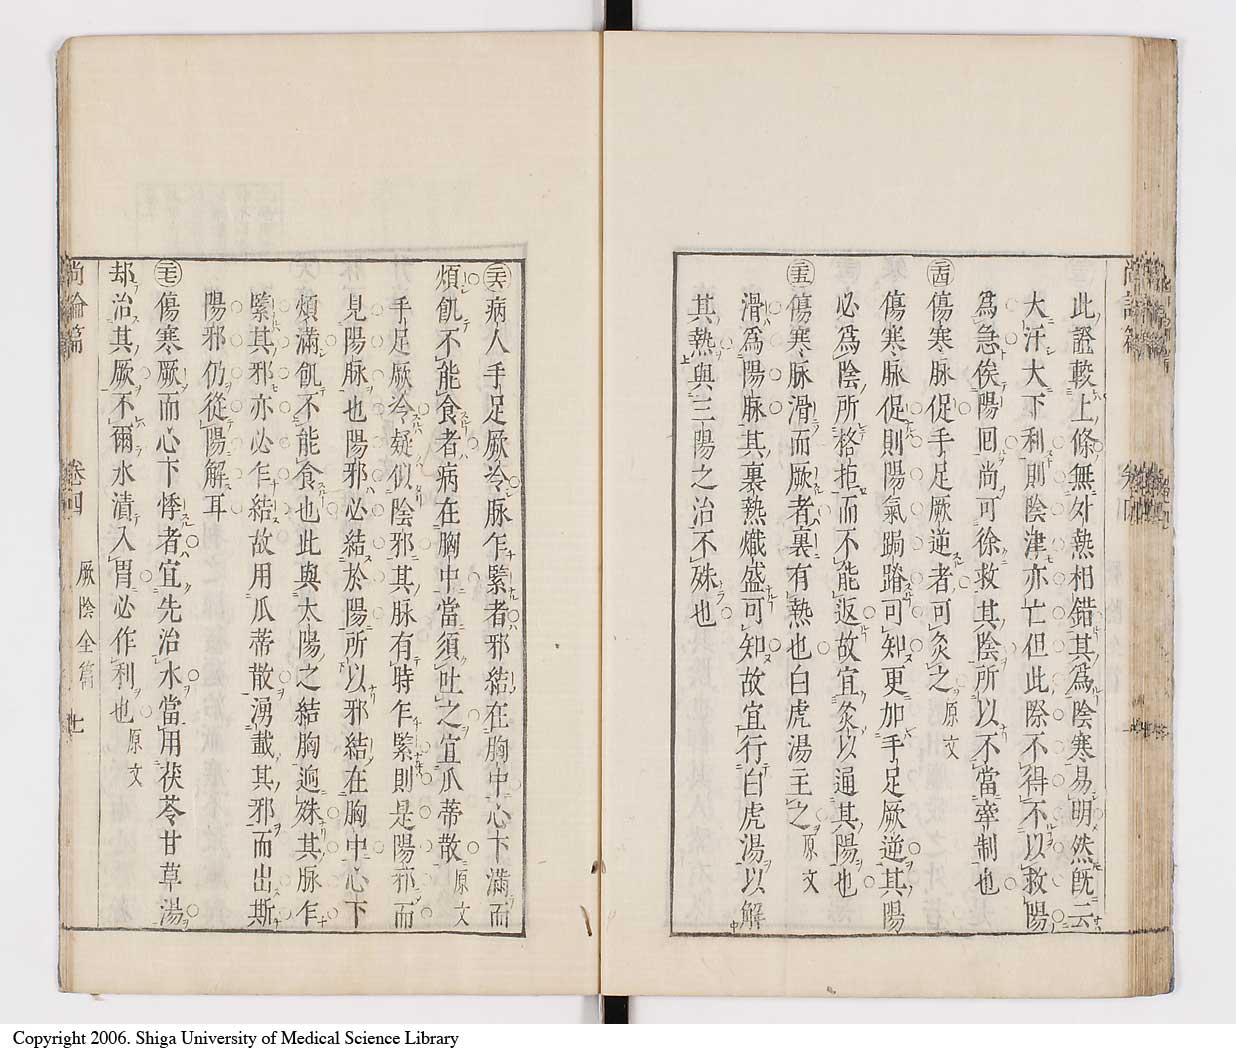 此證較上條無外熱相錯其爲陰寒易明然既云
大汗大下利則陰津亦亡但此際不得不以救陽
爲急俟陽囘尚可徐救其陰所以不當牽制也
傷寒脉促手足厥逆者可灸之原文
傷寒脉促則陽氣跼蹐可知更加手足厥逆其陽
必爲陰所格拒而不能返故宜灸以通其陽也
傷寒脉滑而厥者裏有熱也白虎湯主之原文
滑爲陽脉其裏熱熾盛可知故宜行白虎湯以解
其熱與三陽之治不殊也
病人手足厥冷脉乍緊者邪結在胸中心下滿而
煩飢不能食者病在胸中當須吐之宜瓜蒂散原文
手足厥冷疑似陰邪其脉有時乍緊則是陽邪而
見陽脉也陽邪必結於陽所以邪結在胸中心下
煩滿飢不能食也此與太陽之結胸迥殊其脉乍
緊其邪亦必乍結故用瓜蒂散湧載其邪而出斯
陽邪仍從陽解耳
傷寒厥而心下悸者宜先治水當用茯苓甘草湯
却治其厥不爾水漬入胃必作利也原文
尚論篇 卷四 厥陰全篇
Copyright 2006. Shiga University of Medical Science Library